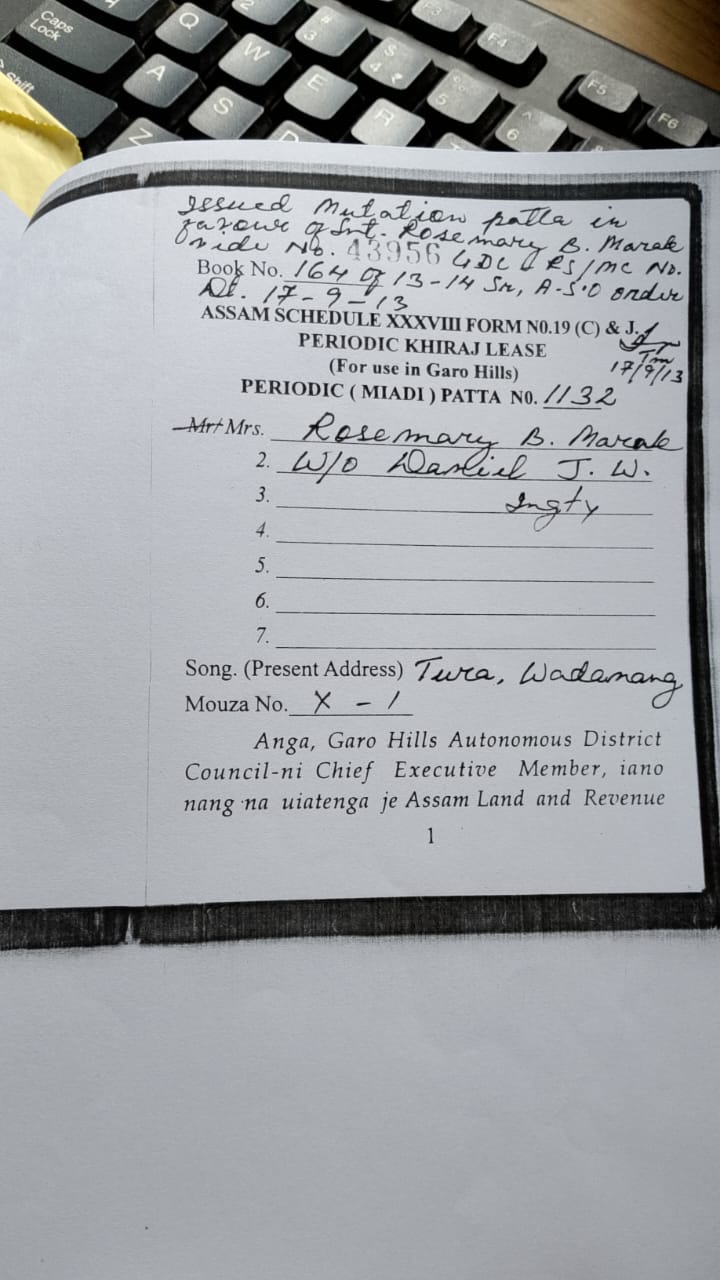 Caps Lock
Shift
Q
W
E
R
A
S
D
Z
2
# 3
$ 4 ₹
5
^ 6
F3
F4
F5
F6
Issued Mutation patta in
favour of Smt. Rosemary B. Marak
vide No. 43956 GDC RS/MC No.
Book No. 164 of 13-14 Sr, A.S.O order
Dt. 17-9-13
ASSAM SCHEDULE XXXVIII FORM N0.19 (C) & J.
PERIODIC KHIRAJ LEASE
(For use in Garo Hills)
17/9/13
PERIODIC ( MIADI ) PATTA N0. 1132
Mr/ Mrs. Rosemary B. Marak
2. W/o Daniel J. W.
3. Ingty
4.
5.
6.
7.
Song. (Present Address) Tura, Wadanang
Mouza No. X - 1
Anga, Garo Hills Autonomous District
Council-ni Chief Executive Member, iano
nang na uiatenga je Assam Land and Revenue
1